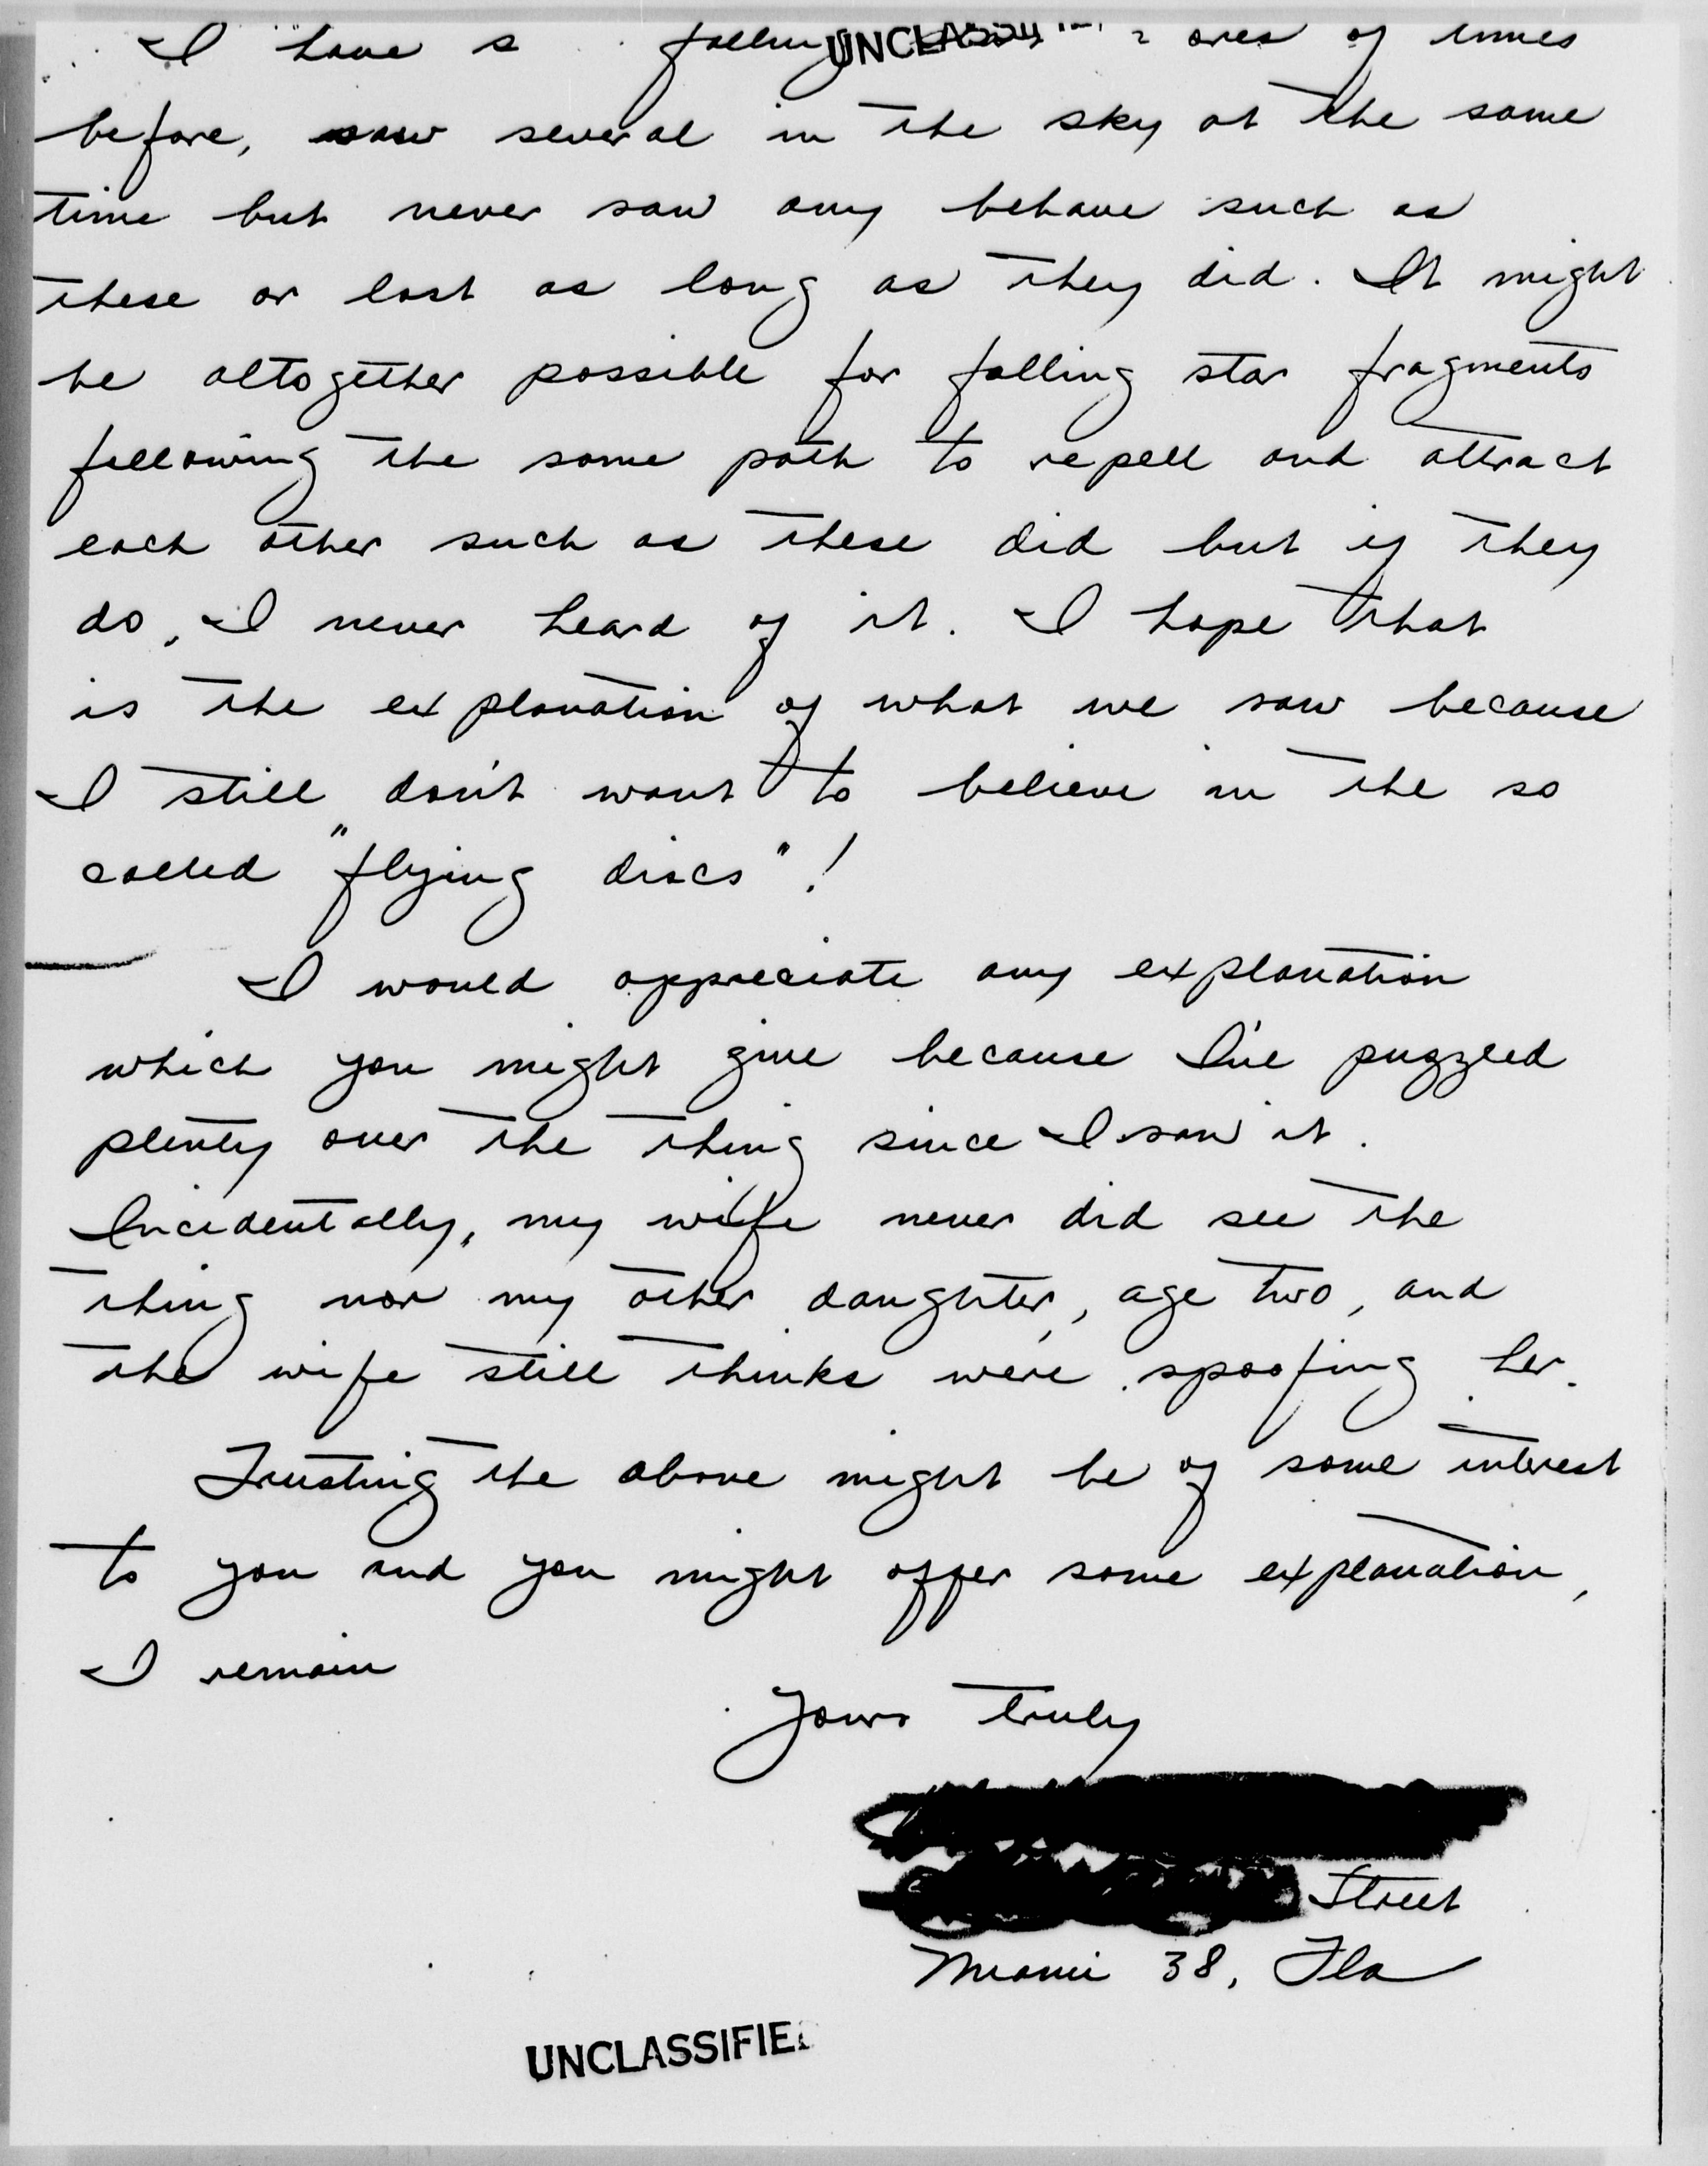 I have s falling UNCLASSIFI of times
before, saw several in the sky at the same
time but never saw any behave such as
these or last as long as they did. It might
be altogether possible for falling star fragments
following the same path to repell and attract
each other such as these did but if they
do, I never heard of it. I hope that
is the explanation of what we saw because
I still don't want to believe in the so
called "flying discs"!
I would appreciate any explanation
which you might give because I've puzzled
plenty over the thing since I saw it.
Incidentally, my wife never did see the
thing nor my other daughter, age two, and
the wife still thinks we're spoofing her.
Trusting the above might be of some interest
to you and you might offer some explanation,
I remain
Yours truly
Street
Miami 38, Fla
UNCLASSIFIED